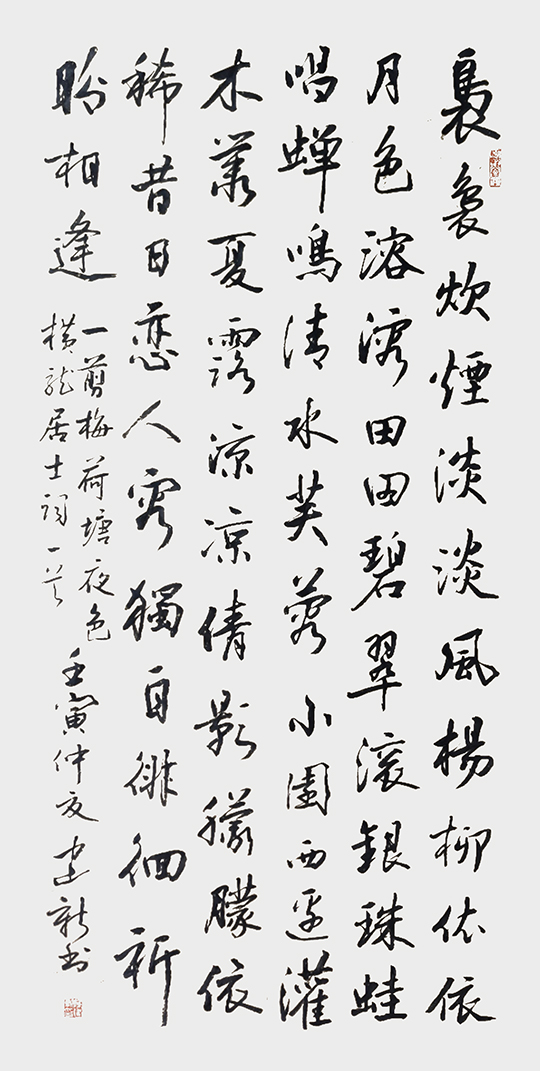 裊裊炊煙淡淡風楊柳依依
月色溶溶田田碧翠滾銀珠蛙
唱蟬鳴清水芙蓉小園西邊灌
木叢夏露涼涼倩影朦朧依
稀昔日恋人容獨自徘徊祈
盼相逢
一剪梅荷塘夜色
橫龙居士詞一首
壬寅仲夏建新书